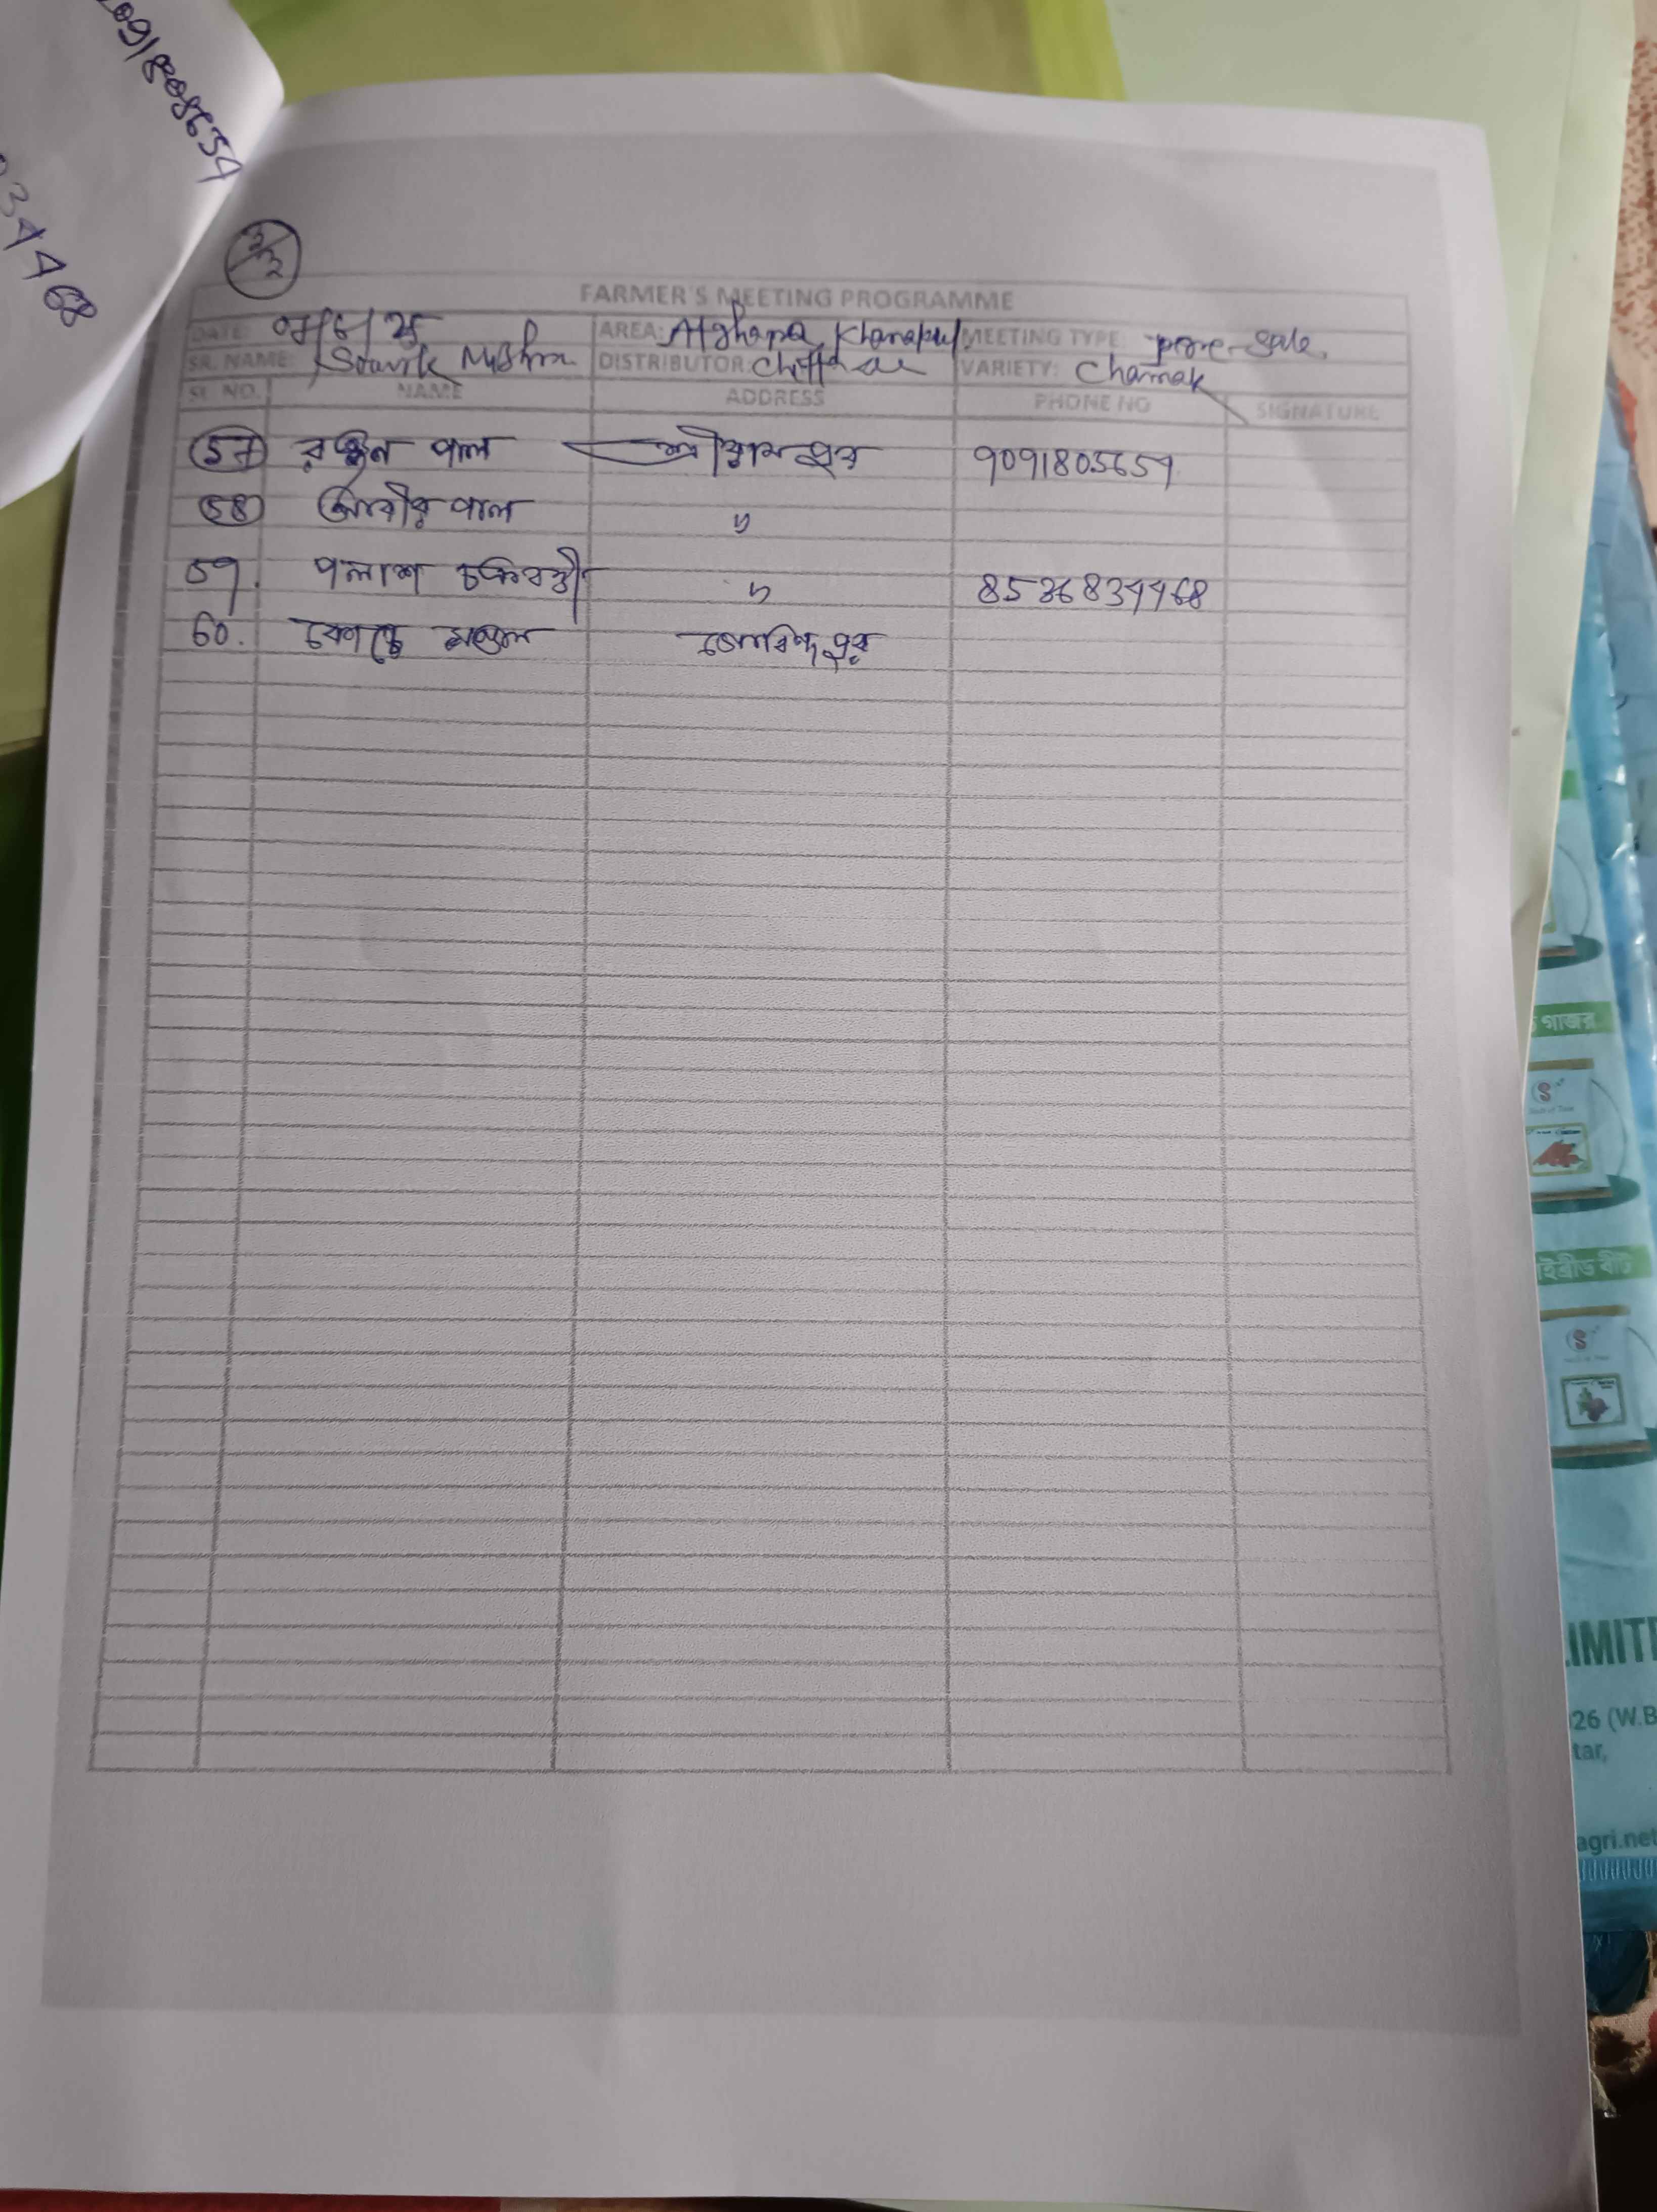 9091808654
34468
3/2
FARMER'S MEETING PROGRAMME
DATE: AREA: Atghana, Khanakul MEETING TYPE: pore-sale,
SR. NAME: Souvik Mishra DISTRIBUTOR: VARIETY: Chamak
SL NO. NAME ADDRESS PHONE NO SIGNATURE
57 রঞ্জন পাল শ্রীরামপুর 9091805654
58 আবীর পাল "
59. পলাশ চক্রবর্তী " 8536834468
60. মণ্ডল গোবিন্দপুর
গাজর
S
ইব্রীড বীট
S
LIMITE
26 (W.B
tar,
agri.net